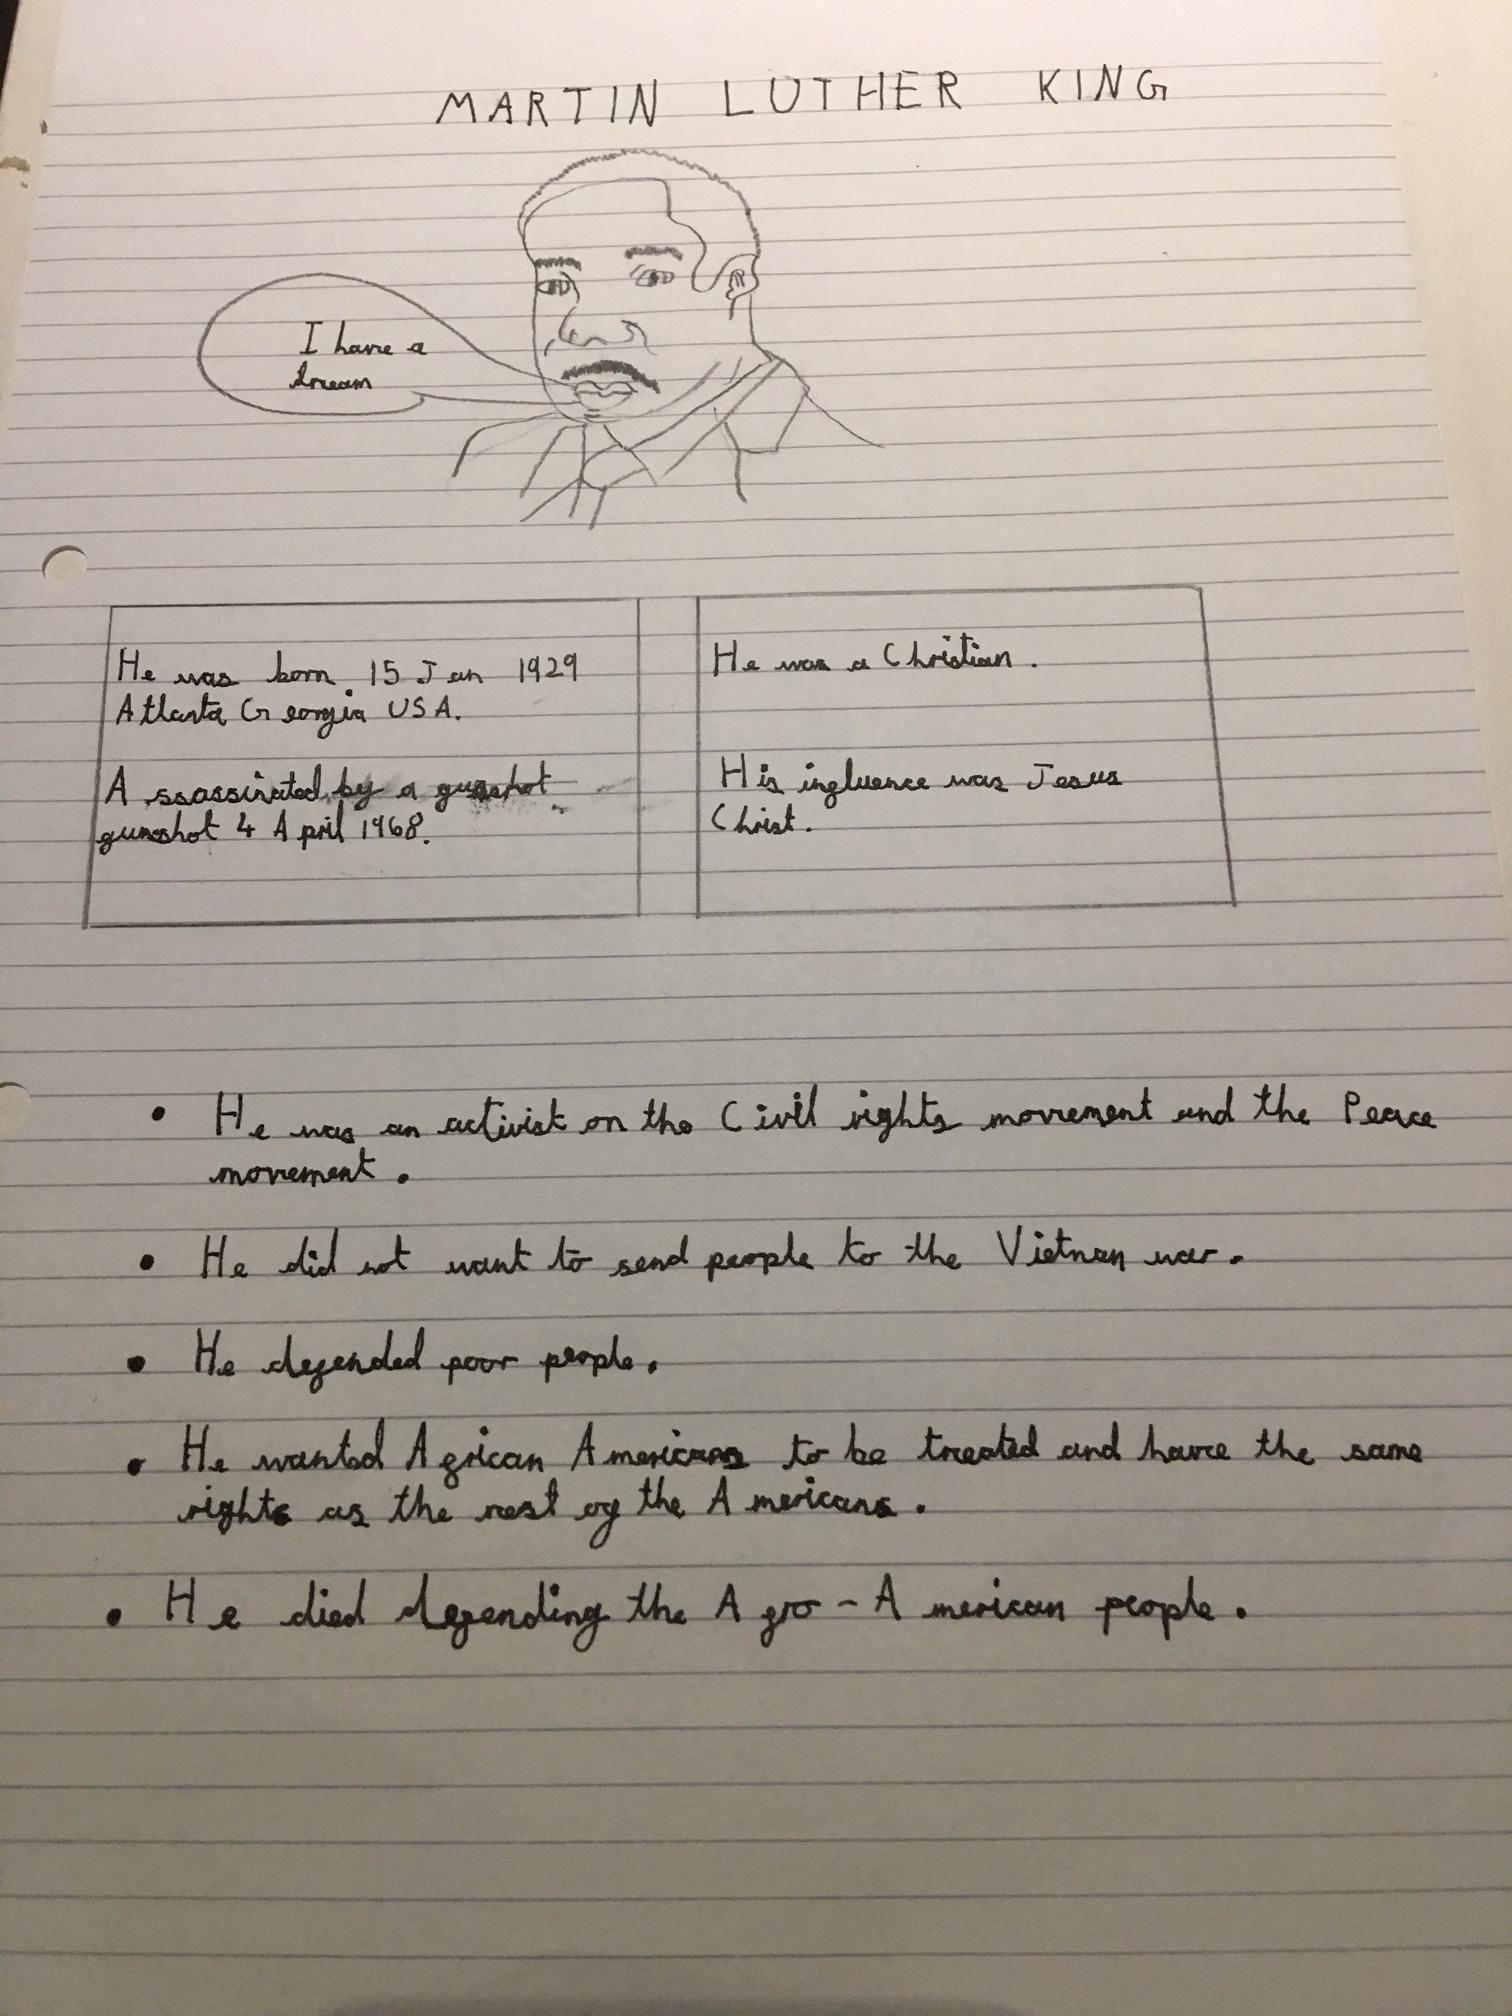 MARTIN LUTHER KING
I have a
dream
He was born 15 Jan 1929
Atlanta Georgia USA.
Assassinated by a gunshot
gunshot 4 April 1968.
He was a Christian.
His influence was Jesus
Christ.
• He was an activist on the Civil rights movement and the Peace
movement.
• He did not want to send people to the Vietnam war.
• He defended poor people.
• He wanted African Americans to be treated and have the same
rights as the rest of the Americans.
• He died defending the Afro-American people.